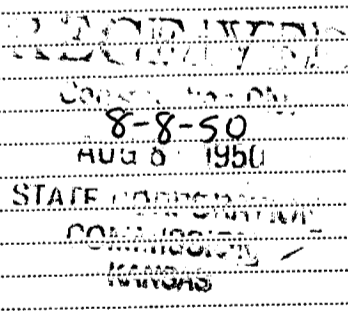 RECEIVED
8-8-50
AUG 8 1950
STATE CORPORATION
COMMISSION
KANSAS